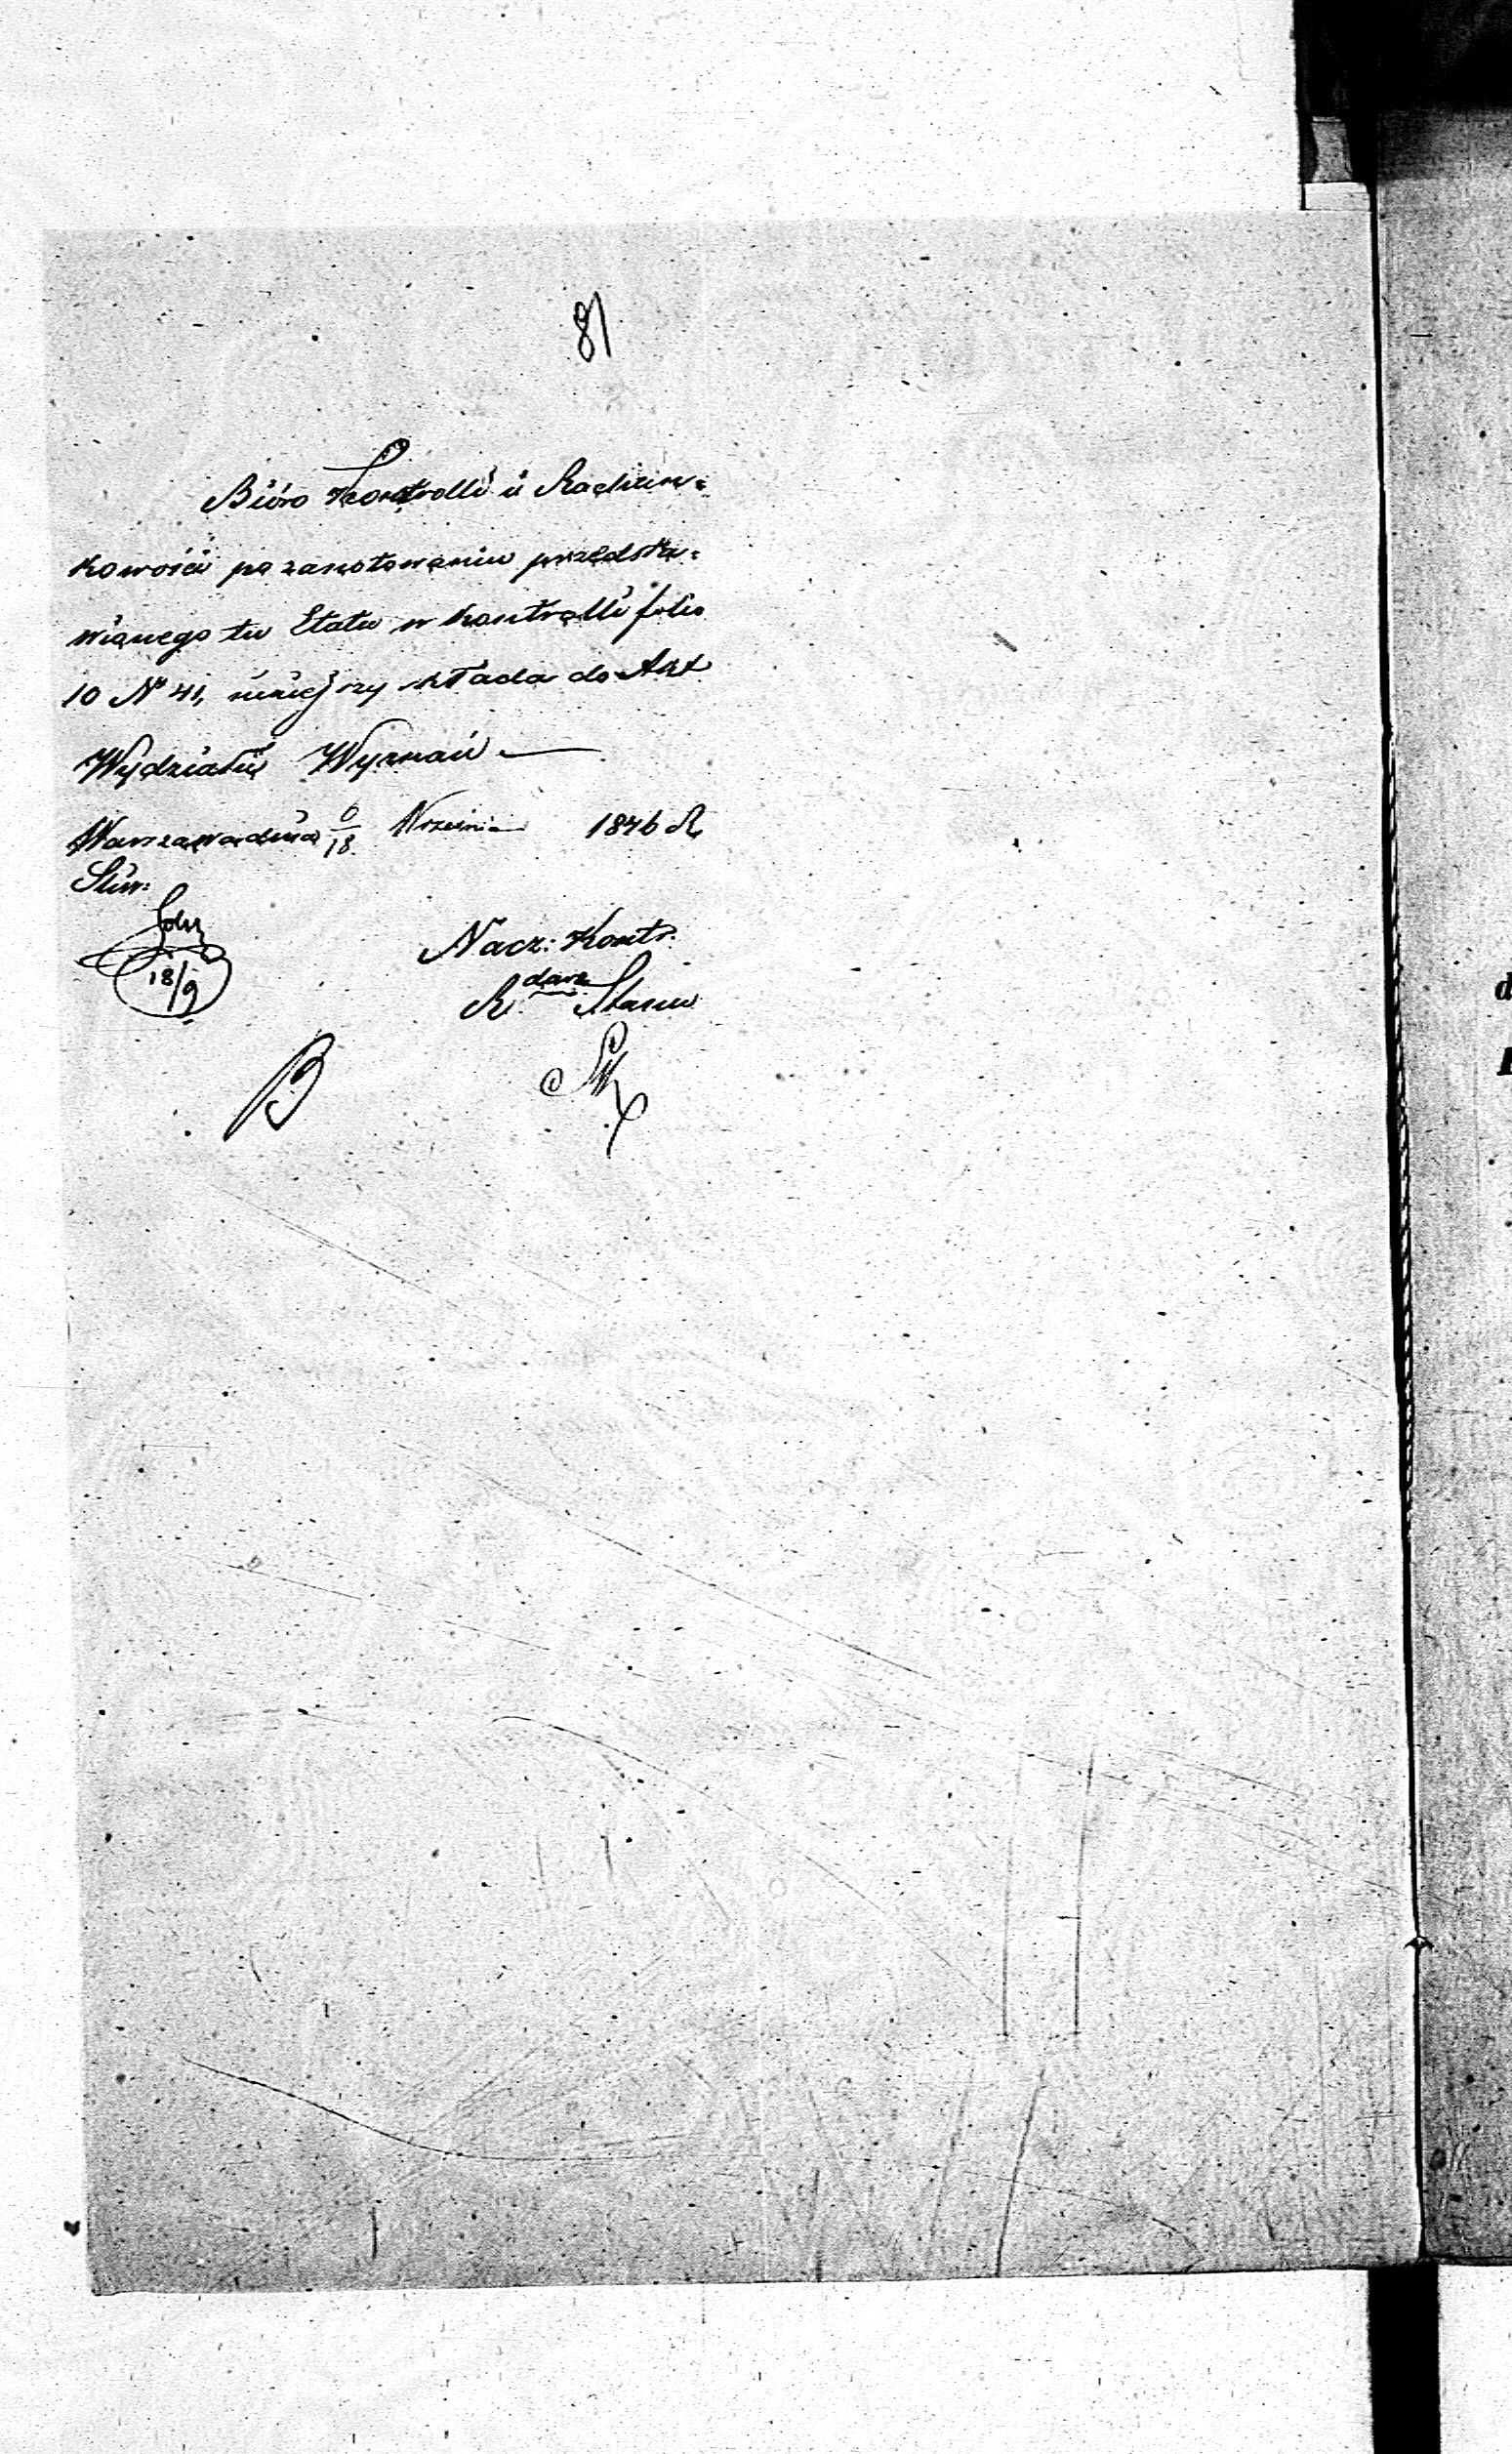 81
Biuro Kontrolli i Rachun=
kowości po zanotowaniu przedsta=
wionego tu Etatu w Kontrolli folio
10 № 41, niniejszy składa do Akt
Wydziału Wyznań —
Warszawa dnia 6/18 Września 1846 R
Nacz: Kontr:
R. darz Stanu
18/9
B